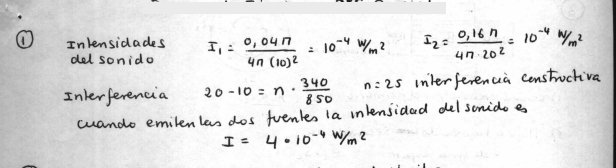 ① Intensidades del sonido I₁ = 0,04π / 4π (10)² = 10⁻⁴ W/m² I₂ = 0,16π / 4π·20² = 10⁻⁴ W/m²
Interferencia 20-10 = n · 340/850 n=25 interferencia constructiva
cuando emiten las dos fuentes la intensidad del sonido es
I = 4·10⁻⁴ W/m²